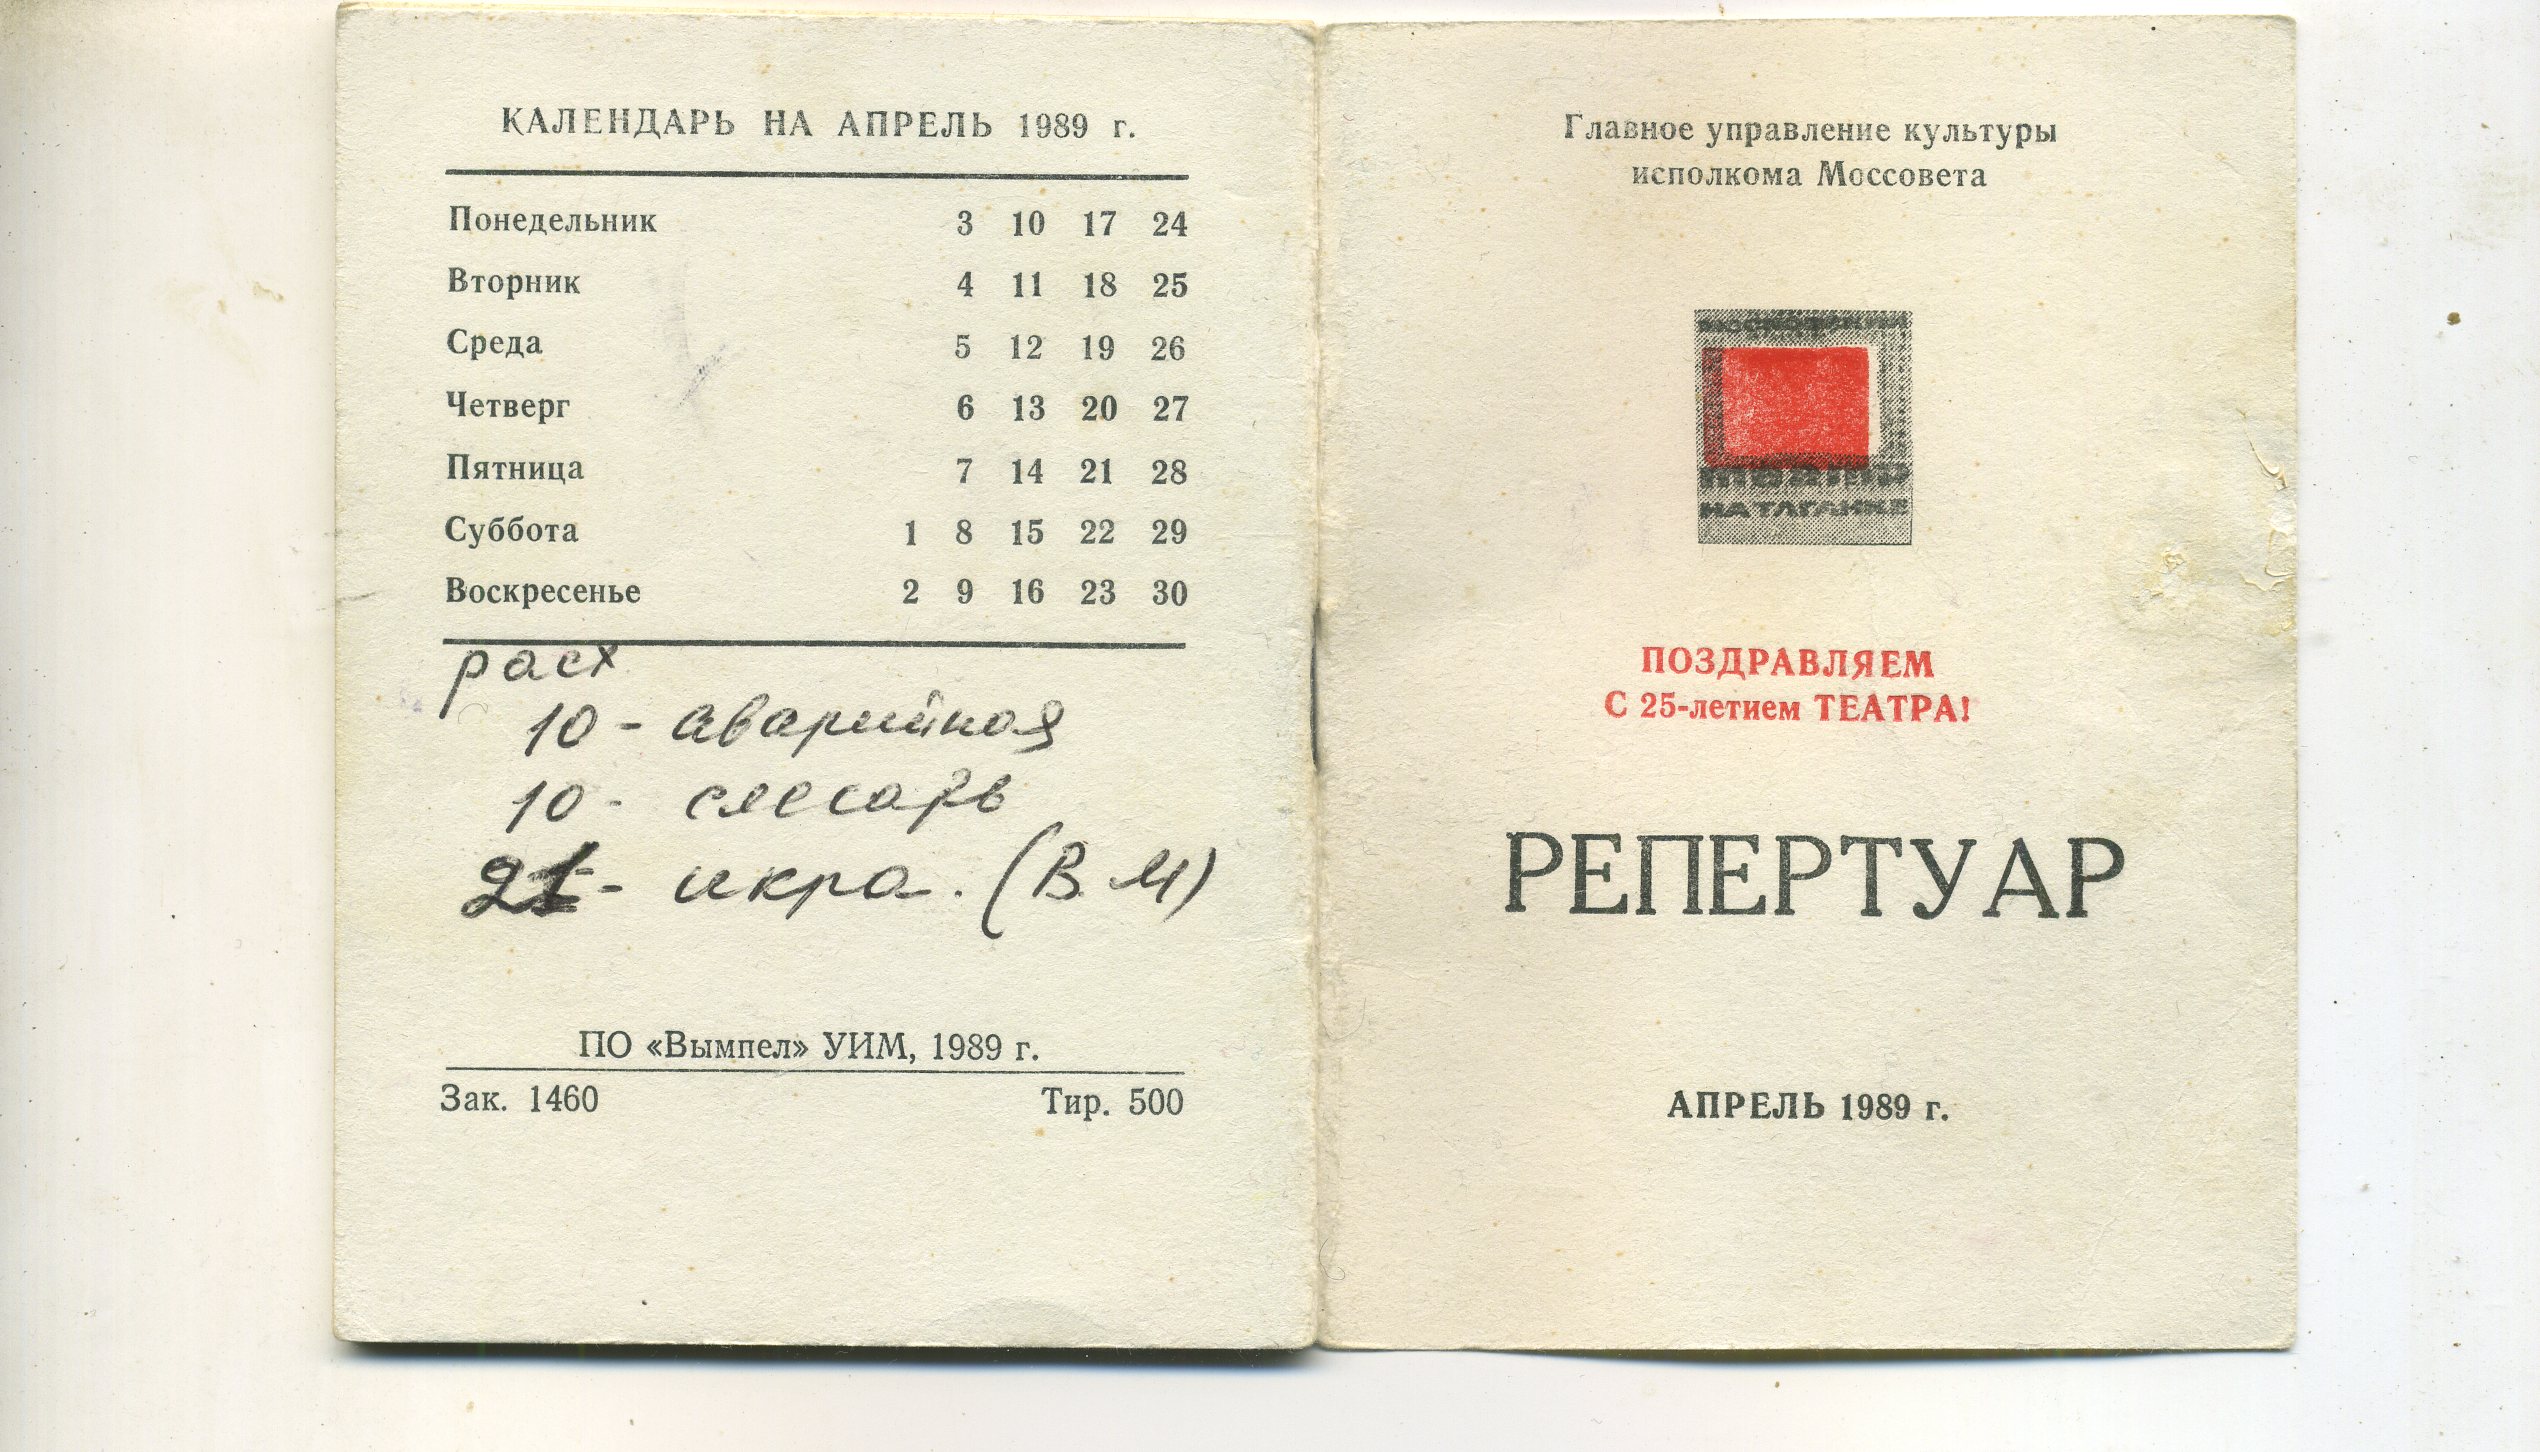 КАЛЕНДАРЬ НА АПРЕЛЬ 1989 г.
Понедельник 3 10 17 24
Вторник 4 11 18 25
Среда 5 12 19 26
Четверг 6 13 20 27
Пятница 7 14 21 28
Суббота 1 8 15 22 29
Воскресенье 2 9 16 23 30
расх
10 - аварийная
10 - слесарь
21 - икра. (В. М)
ПО «Вымпел» УИМ, 1989 г.
Зак. 1460 Тир. 500
Главное управление культуры
исполкома Моссовета
МОСКОВСКИЙ
театр
НА ТАГАНКЕ
ПОЗДРАВЛЯЕМ
С 25-летием ТЕАТРА!
РЕПЕРТУАР
АПРЕЛЬ 1989 г.